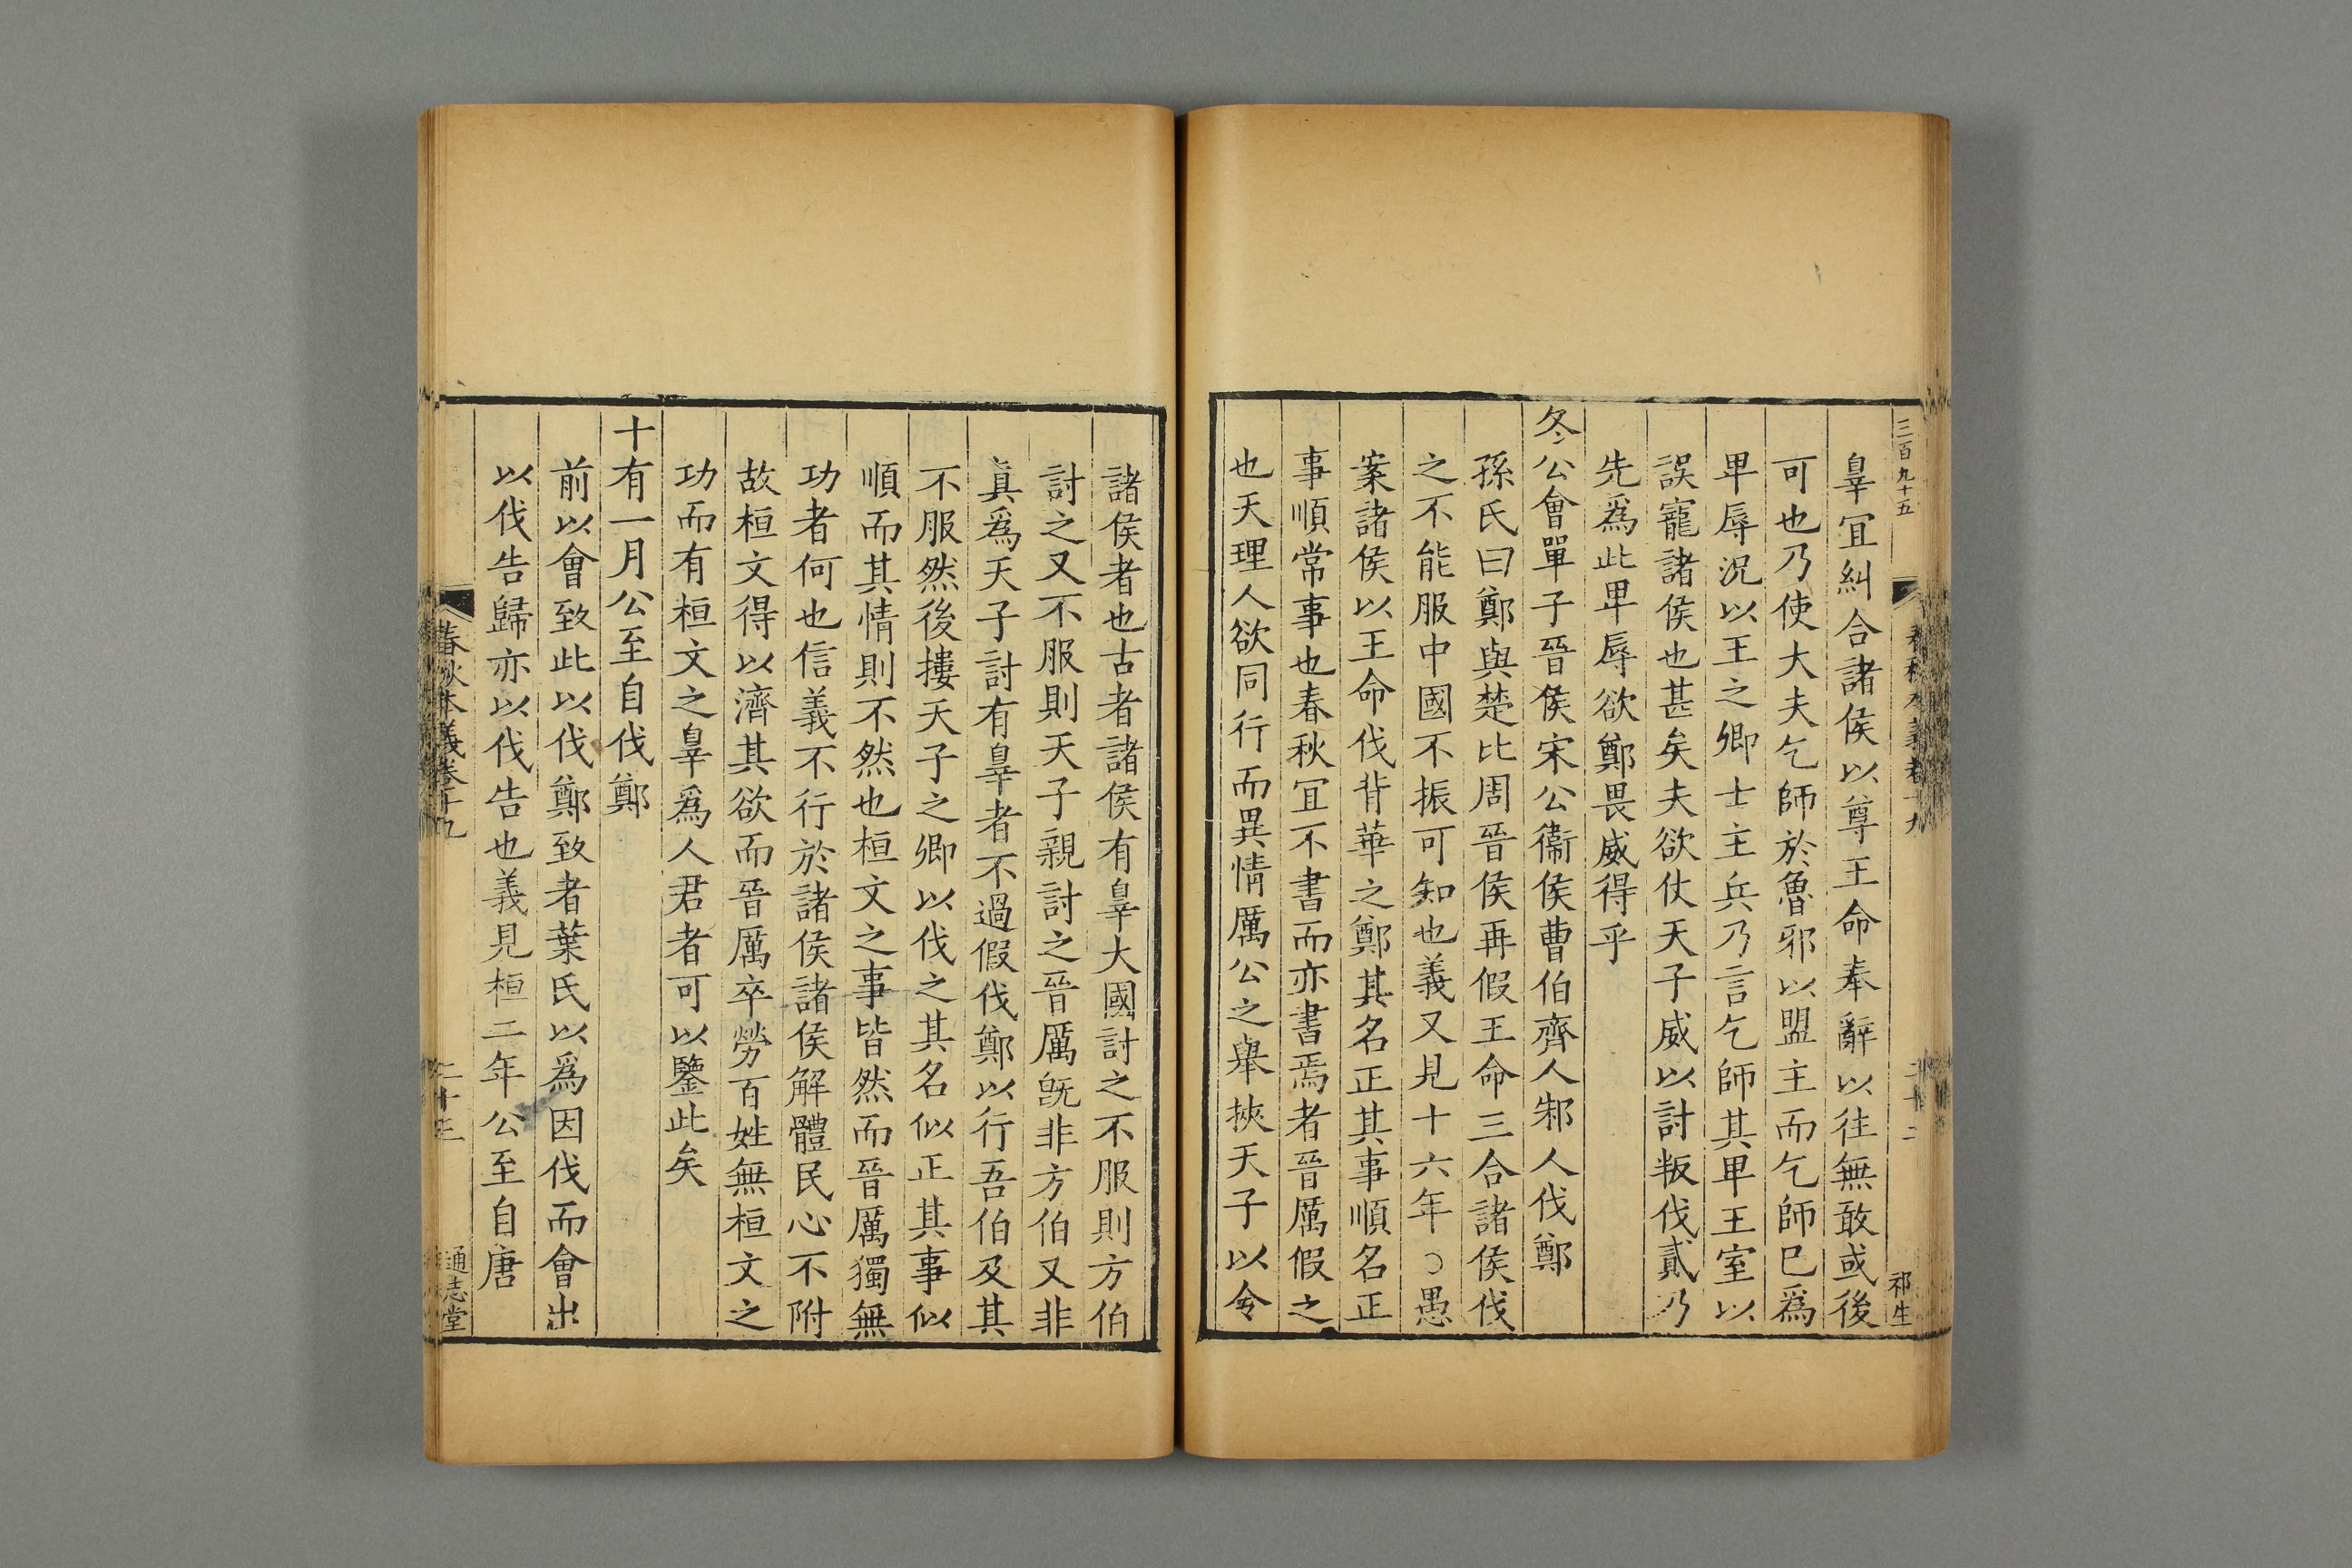 三百九十五
春秋本義卷十九
二十二
祁生
辠宜糾合諸侯以尊王命奉辭以往無敢或後
可也乃使大夫乞師於魯邪以盟主而乞師巳爲
𤰞辱况以王之卿士主兵乃言乞師其𤰞王室以
誤寵諸侯也甚矣夫欲仗天子威以討叛伐貳乃
先爲此𤰞辱欲鄭畏威得乎
冬公會單子晉侯宋公衞侯曹伯齊人邾人伐鄭
孫氏曰鄭與楚比周晉侯再假王命三合諸侯伐
之不能服中國不振可知也義又見十六年○愚
案諸侯以王命伐背華之鄭其名正其事順名正
事順常事也春秋宜不書而亦書焉者晉厲假之
也天理人欲同行而異情厲公之舉挾天子以令
諸侯者也古者諸侯有辠大國討之不服則方伯
討之又不服則天子親討之晉厲旣非方伯又非
真爲天子討有辠者不過假伐鄭以行吾伯及其
不服然後摟天子之卿以伐之其名似正其事似
順而其情則不然也桓文之事皆然而晉厲獨無
功者何也信義不行於諸侯諸侯解體民心不附
故桓文得以濟其欲而晉厲卒勞百姓無桓文之
功而有桓文之辠爲人君者可以鑒此矣
十有一月公至自伐鄭
前以會致此以伐鄭致者葉氏以爲因伐而會出
以伐告歸亦以伐告也義見桓二年公至自唐
春秋本義卷十九
二十三
通志堂